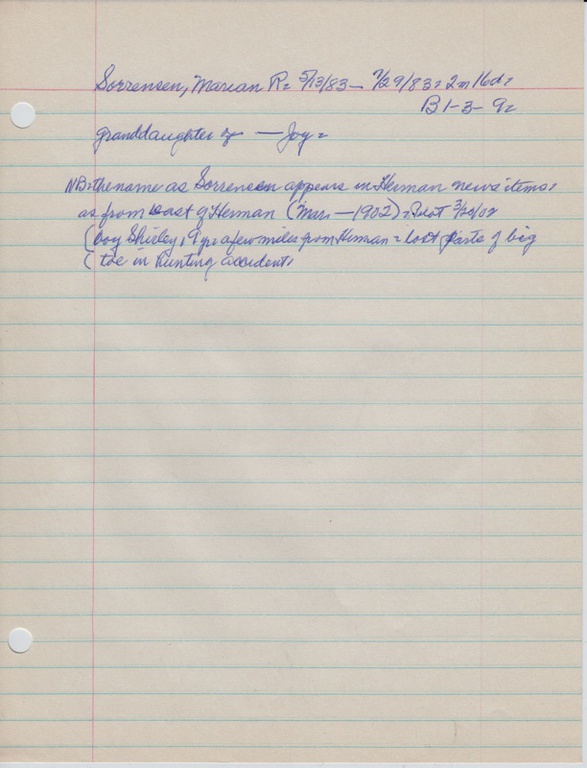 Sorrensen, Marian R. 5/13/83 — 7/29/83, 2m 16d.
B 1-3-9.
granddaughter of — Joy.
NB. the name as Sorrensen appears in Herman news items,
as from east of Herman (Mar. — 1902). Pilot 3/20/02
(boy Shirley, 9 yr a few miles from Herman = lost parts of big
( toe in hunting accident,